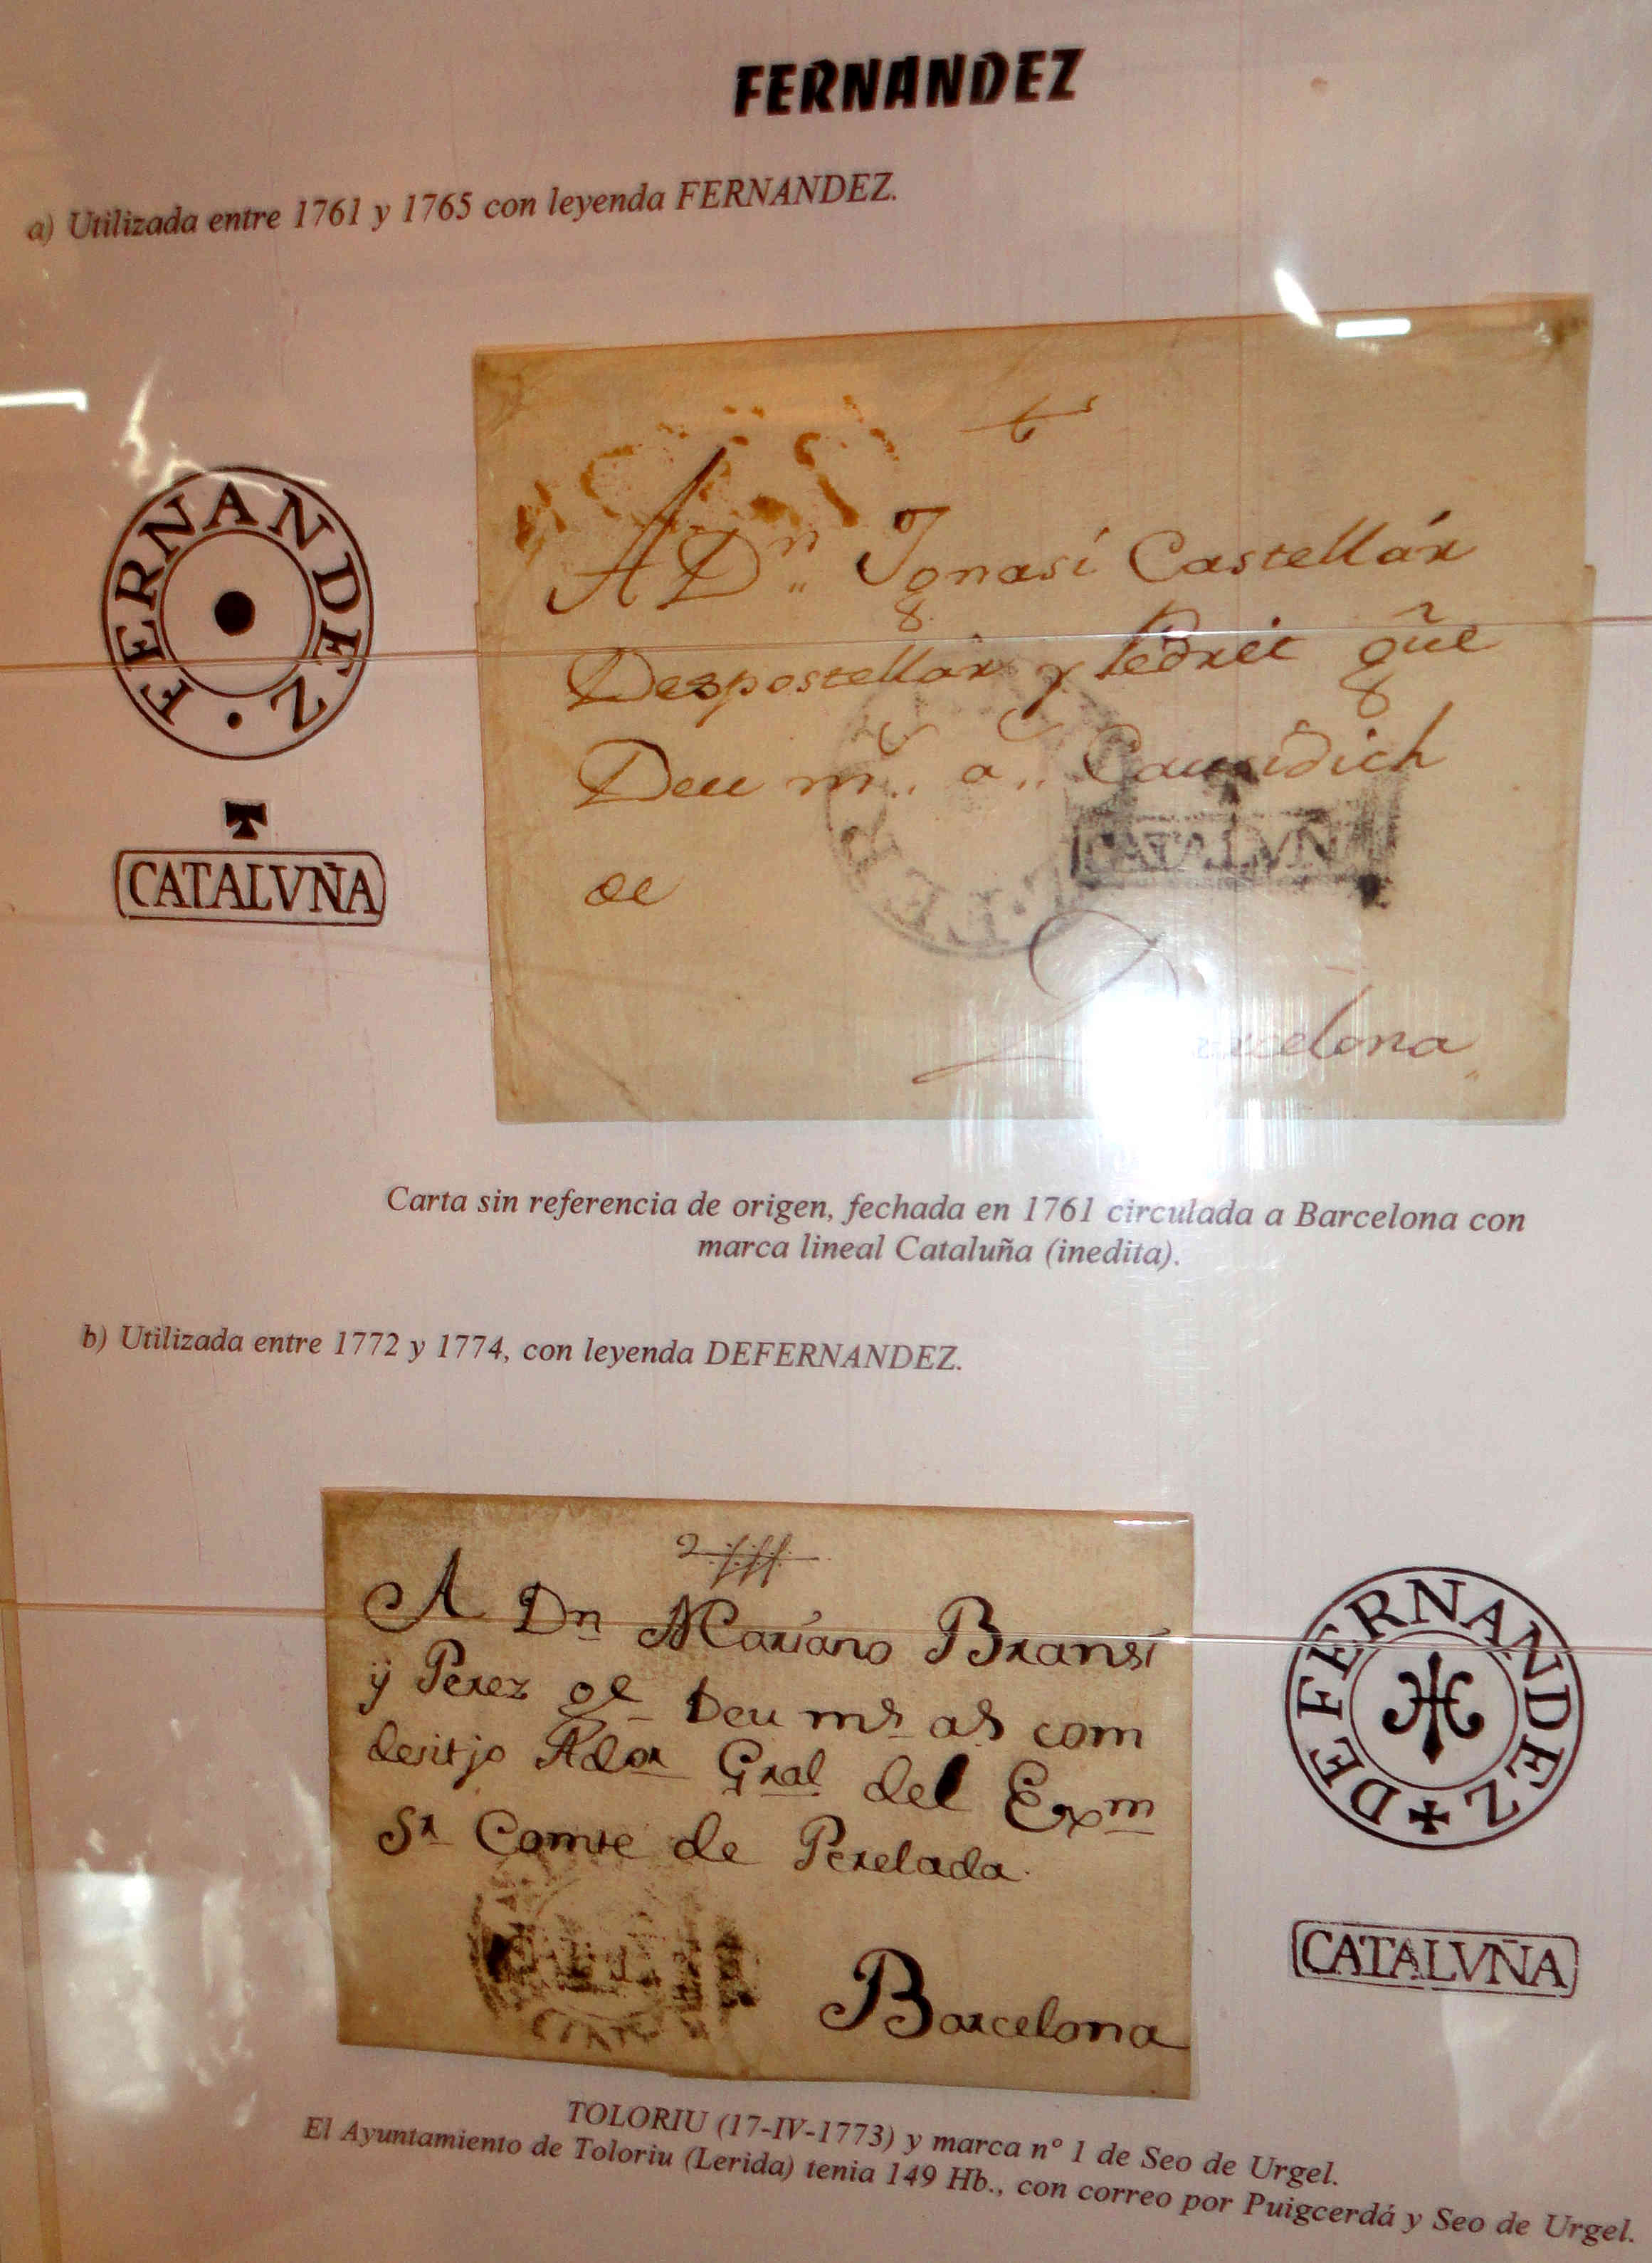 FERNANDEZ
a) Utilizada entre 1761 y 1765 con leyenda FERNANDEZ.
FERNANDEZ
CATALVÑA
A Dn Ignasi Castellár
Despostellar y Pedret
Deu m.. a.. Causidich
de
Barcelona
CATALVÑ
Carta sin referencia de origen, fechada en 1761 circulada a Barcelona con
marca lineal Cataluña (inedita).
b) Utilizada entre 1772 y 1774, con leyenda DEFERNANDEZ.
A Dn Mariano Bransi
ÿ Perez qe Deu ms as com
desitjo Ador Gral del Exm
Sr Comte de Perelada.
Barcelona
DEFERNANDEZ
CATALVÑA
TOLORIU (17-IV-1773) y marca nº 1 de Seo de Urgel.
El Ayuntamiento de Toloriu (Lerida) tenia 149 Hb., con correo por Puigcerdá y Seo de Urgel.